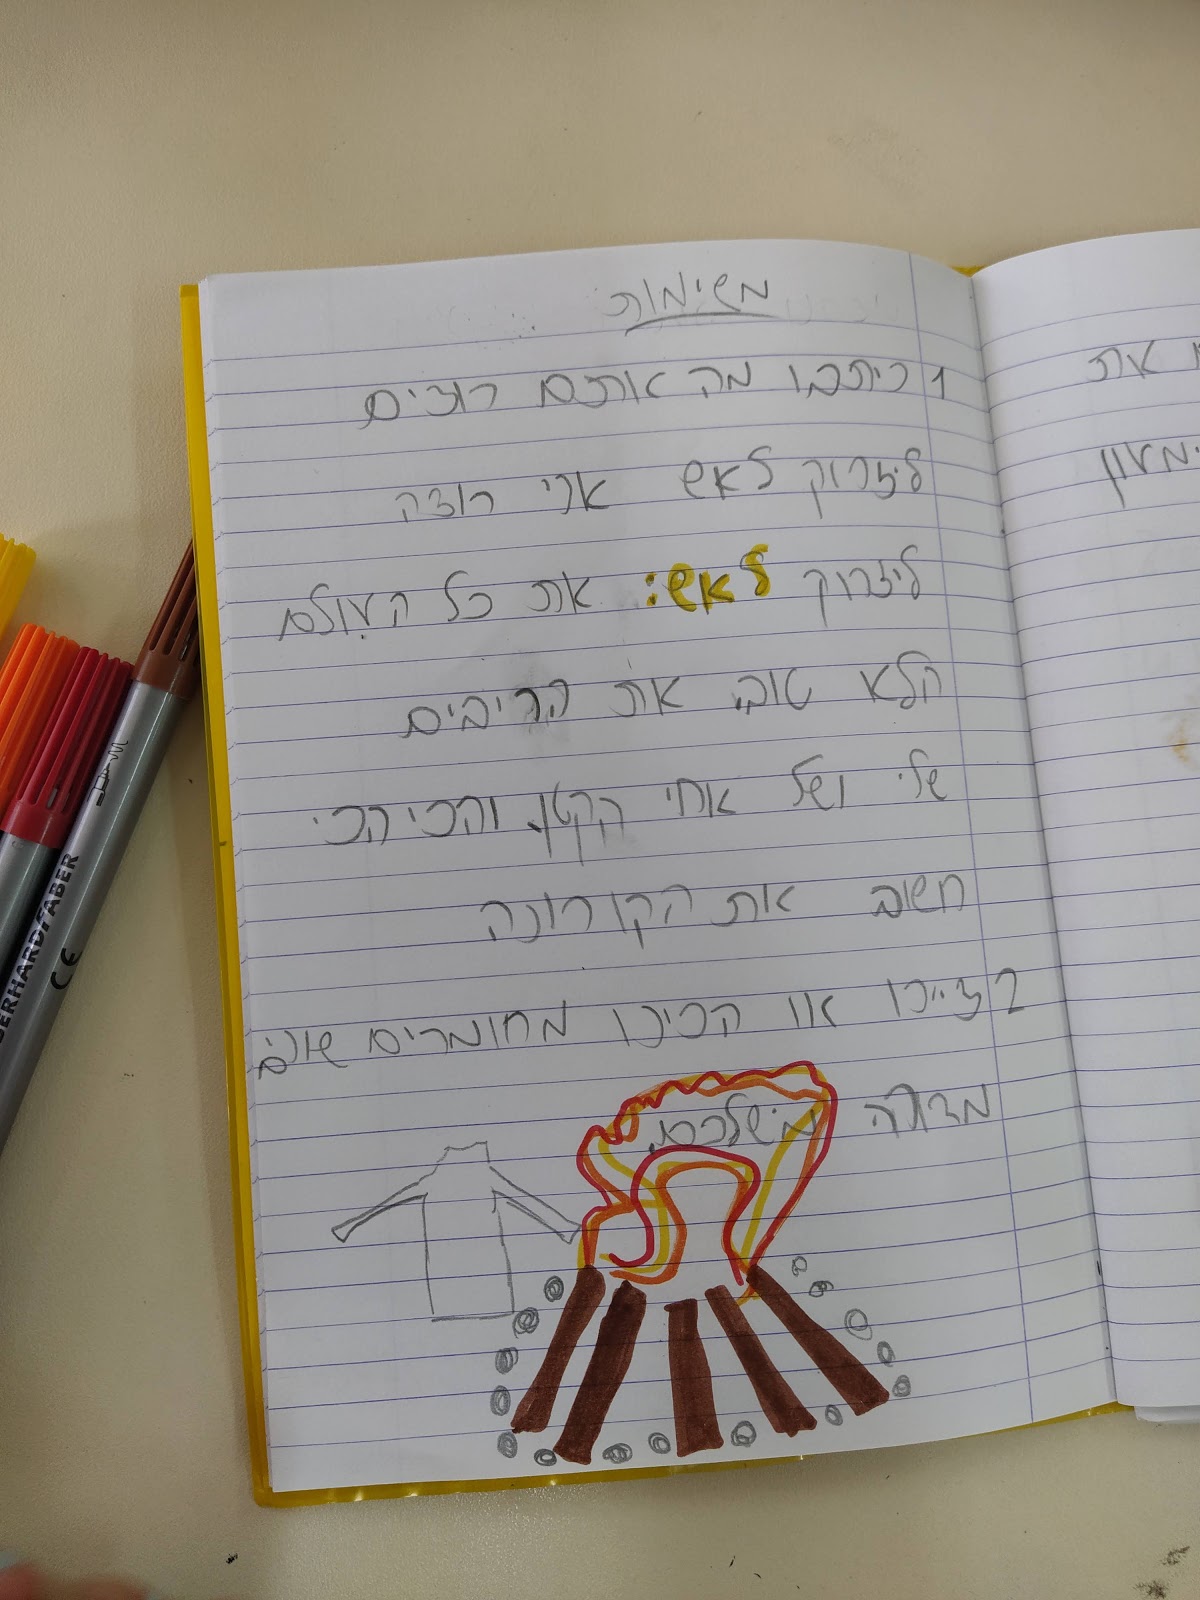 משימות
1 כיתבו מה אתם רוצים
ליזרוק לאש אני רוצה
ליזרוק לאש: את כל העולם
הלא טוב. את הריבים
שלי ושל אחי הקטן. והכי הכי
חשוב את הקורונה
2 ציירו או הכינו מחומרים שונים
מדורה משלכם.
את
EBERHARDFABER
CE